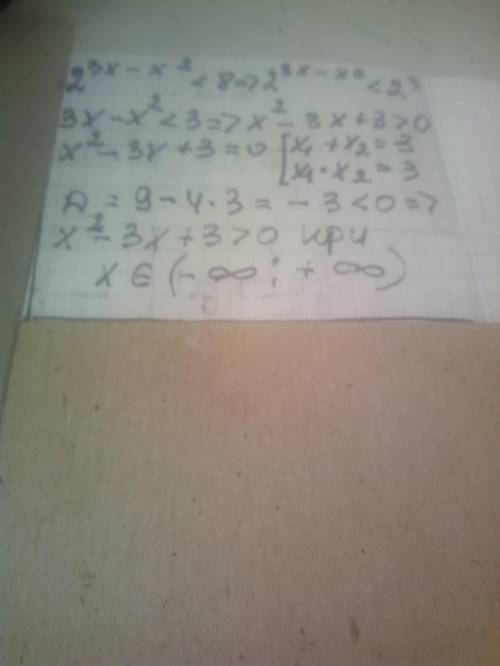 2^{3x - x^2} < 8 => 2^{3x - x^2} < 2^3
3x - x^2 < 3 => x^2 - 3x + 3 > 0
x^2 - 3x + 3 = 0 [x₁ + x₂ = 3
[x₁ · x₂ = 3
D = 9 - 4 · 3 = - 3 < 0 =>
x^2 - 3x + 3 > 0 при
x ∈ (- ∞ ; + ∞)